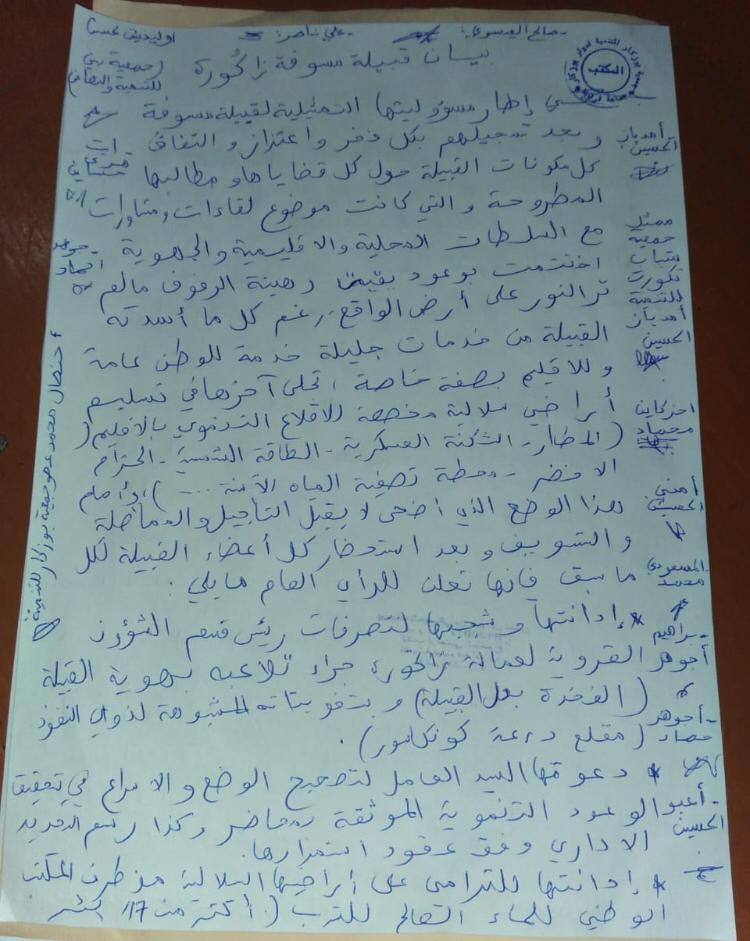 صالح العيسوي: علي ناصر:
بيان قبيلة مسوفة زاكورة
المكتب
في إطار مسؤوليتها التمثيلية لقبيلة مسوفة
وبعد تسجيلهم بكل فخر واعتزاز والتفاف
كل مكونات القبيلة حول كل قضاياها ومطالبها
المطروحة والتي كانت موضوع لقاءات ومشاورات
مع السلطات المحلية والاقليمية والجهوية
اختتمت بوعود بقيت رهينة الرفوف مالم
تر النور على أرض الواقع، رغم كل ما أسدته
القبيلة من خدمات جليلة خدمة للوطن عامة
وللاقليم بصفة خاصة، تجلى آخرها في تسليم
أراضي سلالية مخصصة للاقلاع التنموي بالاقليم
(المطار - الثكنة العسكرية - الطاقة الشمسية - الحزام
الاخضر - محطة تصفية المياه الآسنة ....)، وأمام
هذا الوضع الذي أضحى لا يقبل التأجيل والمماطلة
والتسويف وبعد استحضار كل أعضاء القبيلة لكل
ما سبق فإنها تعلن للرأي العام ما يلي:
* إدانتها وشجبها لتصرفات رئيس قسم الشؤون
القروية لعمالة زاكورة جراء تلاعبه بهوية القبيلة
(الفخدة بدل القبيلة) وبتفويتاته المشبوهة لذوي النفوذ
(مقلع درعة كونكاسور).
* دعوتها السيد العامل لتصحيح الوضع والاسراع في تحقيق
الوعود التنموية الموثقة بمحاضر وكذا رسم التحديد
الاداري وفق عقود استمرارها.
* إدانتها للترامي على أراضيها السلالية من طرف المكتب
الوطني للماء الصالح للشرب (أكثر من 17
أمدياز
الحسين
ممثل
جمعية
شباب
تكورت
للتنمية
أمدياز
الحسين
أمني
الحسين
المسعودي
محمد
براهيم
أجوهر
أجوهر
حماد
أعبو
الحسين